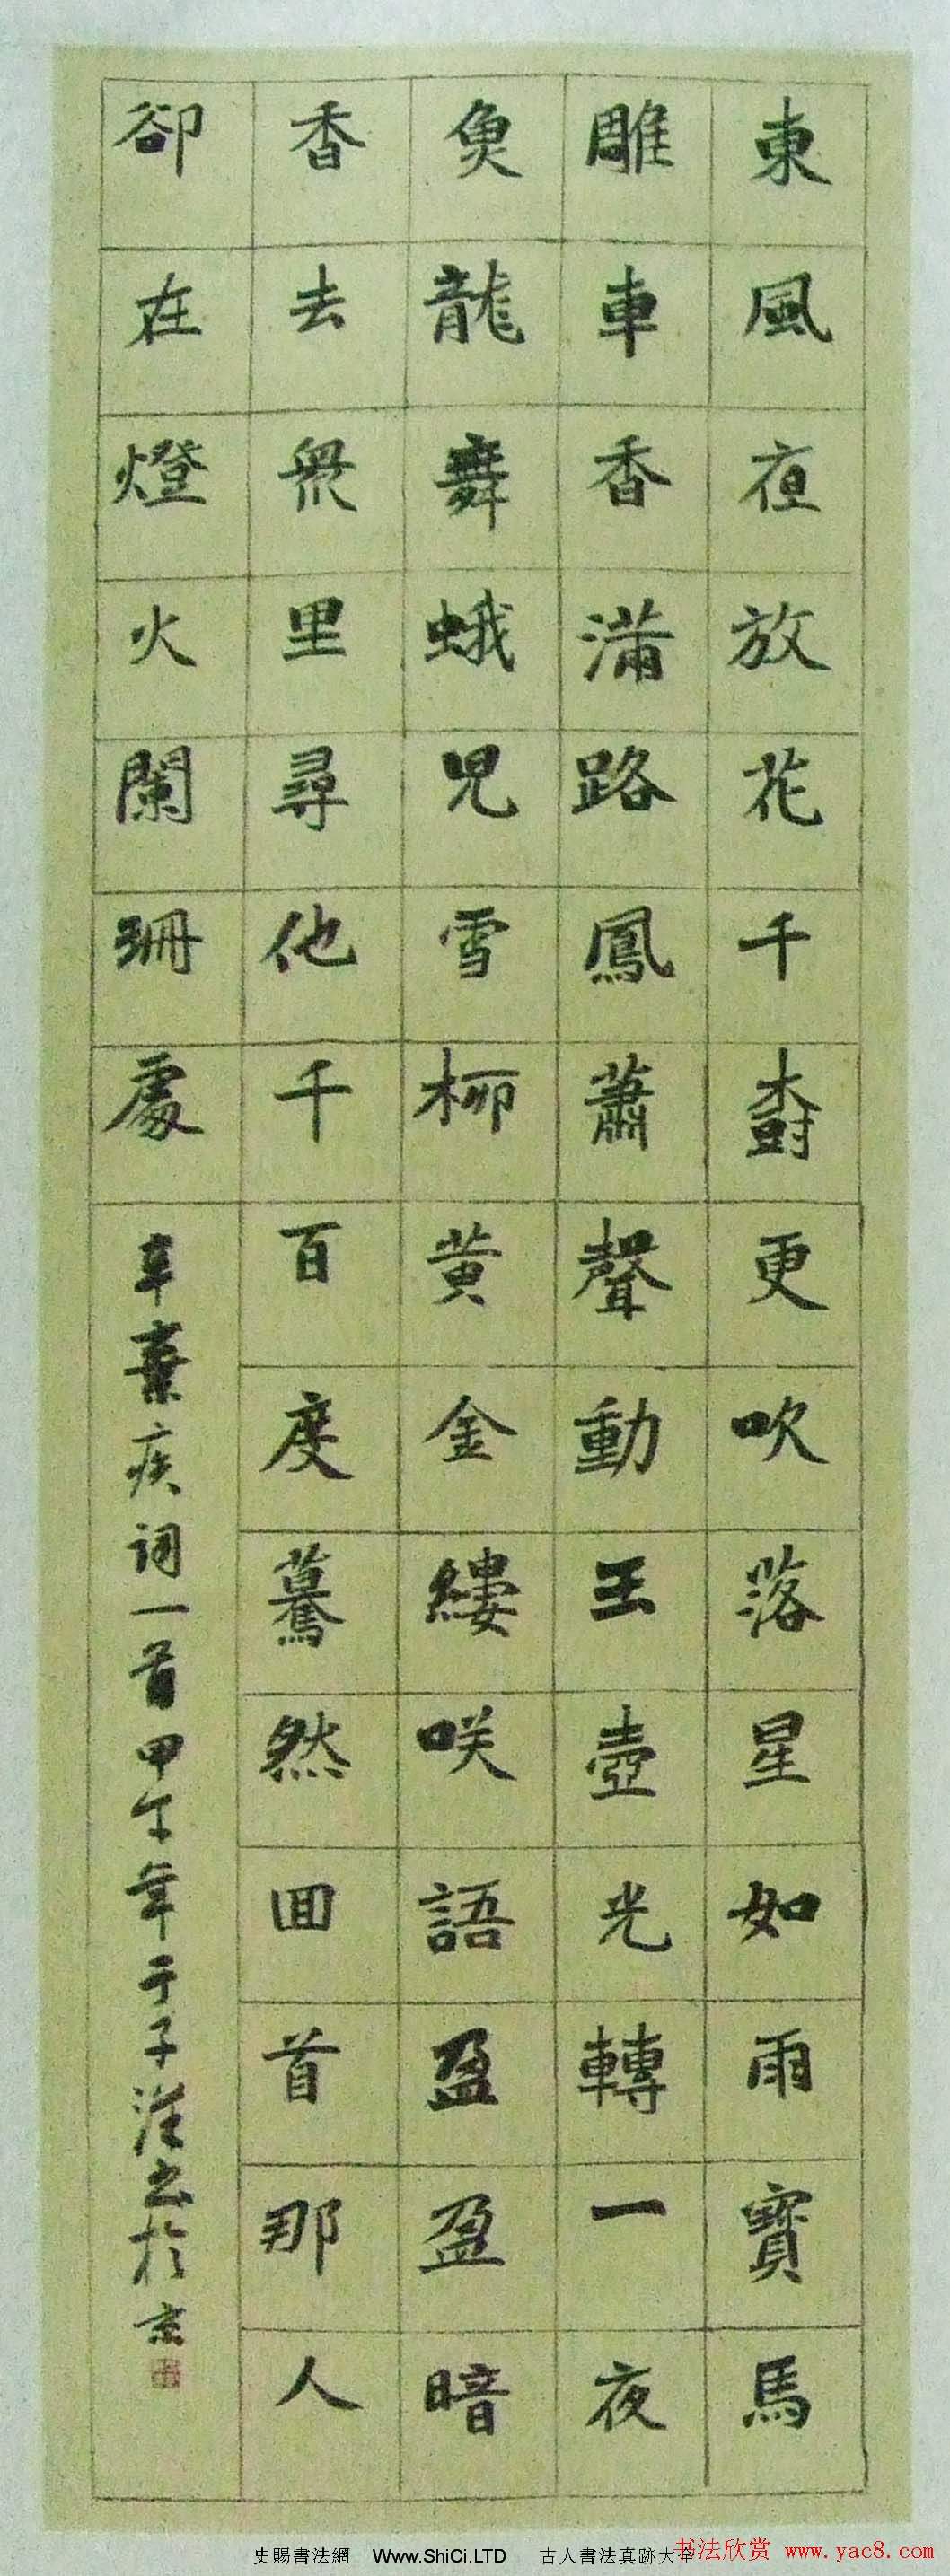 東風夜放花千樹更吹落星如雨寶馬
雕車香滿路鳳蕭聲動玉壺光轉一夜
魚龍舞蛾兒雪柳黄金縷咲語盈盈暗
香去衆里尋他千百度驀然回首那人
卻在燈火闌珊處
辛棄疾詞一首甲午年于子书於京
史賜書法網 Www.ShiCi.LTD 古人書法真跡大全
书法欣赏 www.yac8.com